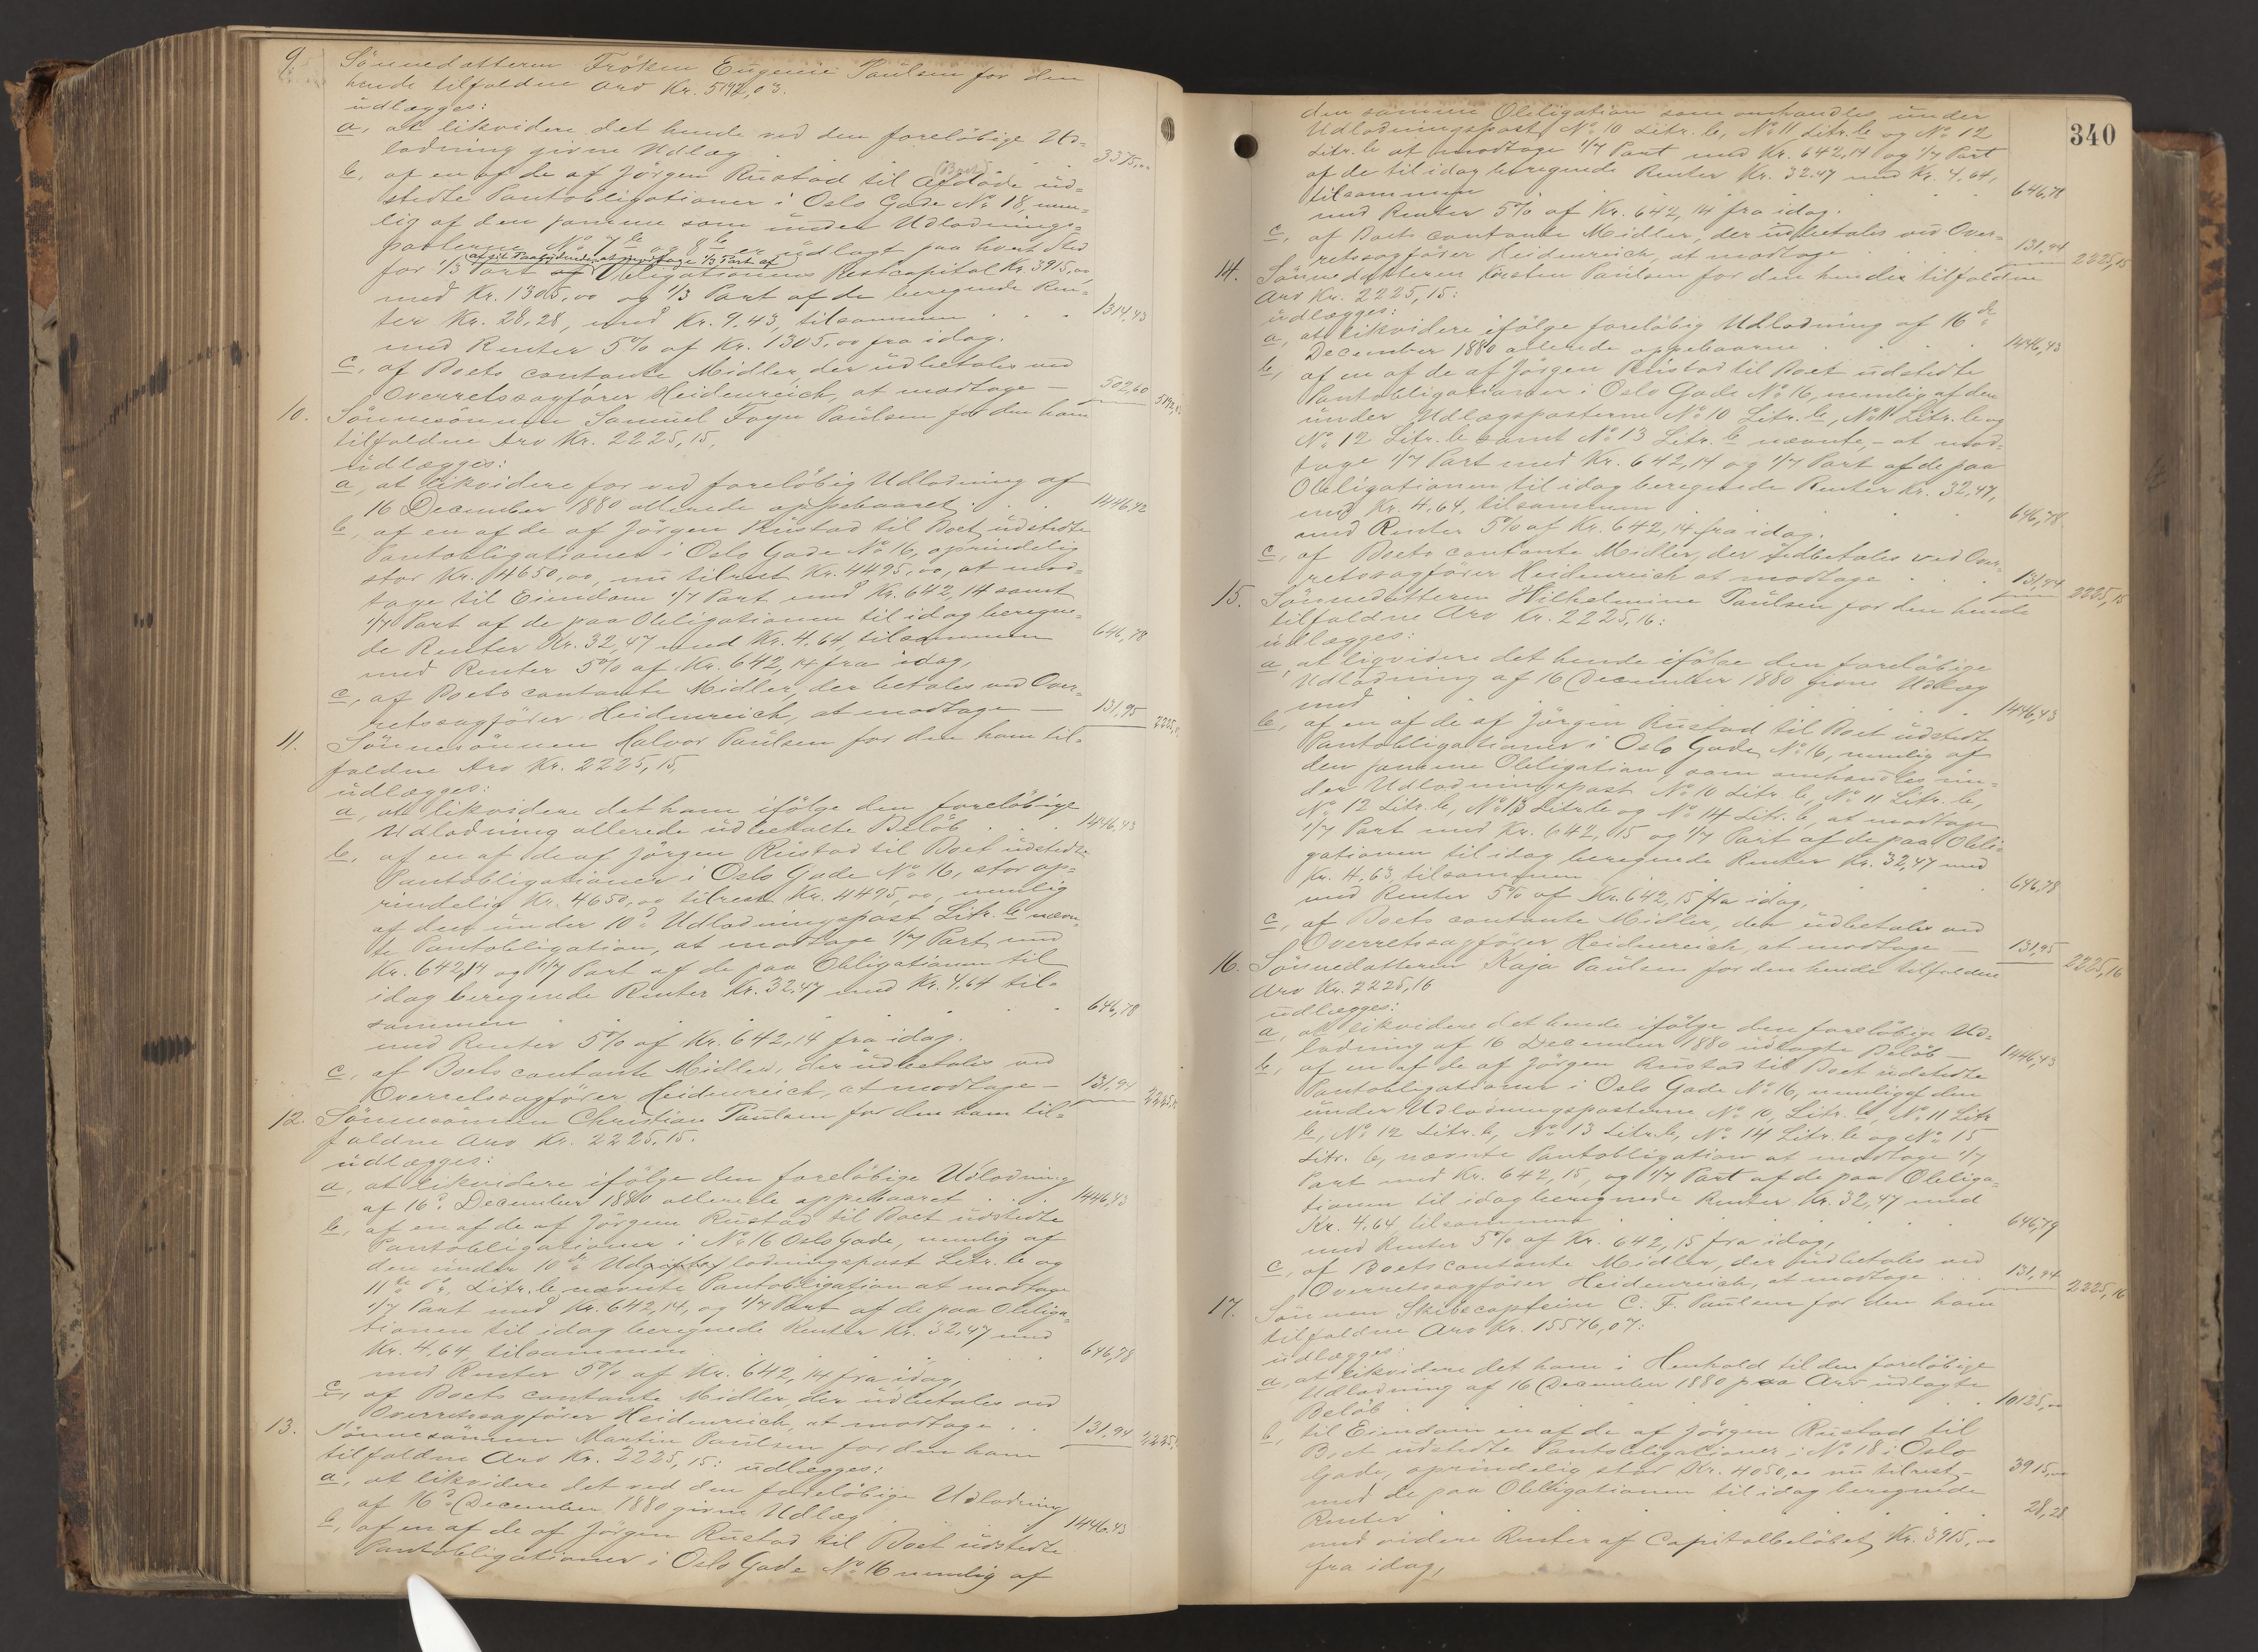 9. Sönnedatteren Fröken Eugenie Paulsen for den
hende tilfaldne Arv Kr. 5192,03.
udlægges:
a, at likvidere det hende ved den foreløbige Ud=
lodning givne Udlæg . . 3375,00
b, af en af de af Jörgen Rustad til Afdöde (Boet) ud=
stedte Pantobligationer i Oslo Gade No 18, nem=
lig af den samme som under Udlodnings=
posterne No 7 b og 8 b er udlagt paa hvert Sted
for 1/3 Part af Obligationens Restcapital Kr. 3915,00
med Kr. 1305,00 og 1/3 Part af de beregnede Ren=
ter Kr. 28,28, med Kr. 9,43, tilsammen . . . 1314,43
med Renter 5% af Kr. 1305,00 fra idag.
c, af Boets contante Midler, der udbetales ved
Overretssagförer Heidenreich, at modtage — 502,60 5192,03
10. Sönnesönnen Samuel Foyn Paulsen for den ham
tilfaldne Arv Kr. 2225,15,
udlægges:
a, at likvidere for ved foreløbig Udlodning af
16 December 1880 allerede oppebaaret . . . 1446,42
b, af en af de af Jörgen Rustad til Boet udstedte
Pantobligationer i Oslo Gade No 16, oprindelig
stor Kr. 4650,00, nu tilrest Kr. 4495,00, at mod=
tage til Eiendom 1/7 Part med Kr. 642,14 samt
1/7 Part af de paa Obligationen til idag beregne=
de Renter Kr. 32,47 med Kr. 4,64, tilsammen 646,78
med Renter 5% af Kr. 642,14 fra idag,
c, af Boets contante Midler, der betales ved Over=
retssagförer Heidenreich, at modtage — 131,95 2225,15
11. Sönnesönnen Halvor Paulsen for den ham til=
faldne Arv Kr. 2225,15,
udlægges:
a, at likvidere det ham ifölge den foreløbige
Udlodning allerede udbetalte Belöb . . . 1446,43
b, af en af de af Jörgen Rustad til Boet udstedte
Pantobligationer i Oslo Gade No 16, stor op=
rindelig Kr. 4650,00 tilrest Kr. 4495,00, nemlig
af den under 10de Udlodningspost Litr. b nævn=
te Pantobligation, at modtage 1/7 Part med
Kr. 642,14 og 1/7 Part af de paa Obligationen til
idag beregnede Renter Kr. 32,47 med Kr. 4,64 til=
sammen . . . . . 646,78
med Renter 5% af Kr. 642,14 fra idag.
c, af Boets contante Midler, der udbetales ved
Overretssagförer Heidenreich, at modtage — 131,94 2225,15
12. Sönnesönnen Christian Paulsen for den ham til=
faldne Arv Kr. 2225,15.
udlægges:
a, at likvidere ifölge den foreløbige Udlodning
af 16de December 1880 allerede oppebaaret . . . 1446,43
b, af en af de af Jörgen Rustad til Boet udstedte
Pantobligationer i No 16 Oslo Gade, nemlig af
den under 10de Udlodningspost Litr. b og
11te do Litr. b nævnte Pantobligation at modtage
1/7 Part med Kr. 642,14, og 1/7 Part af de paa Obliga=
tionen til idag beregnede Renter Kr. 32,47 med
Kr. 4,64, tilsammen . . . . 646,78
med Renter 5% af Kr. 642,14 fra idag,
c, af Boets contante Midler, der udbetales ved
Overretssagförer Heidenreich, at modtage . . 131,94
13. Sönnesönnen Martin Paulsen for den ham
tilfaldne Arv Kr. 2225,15: udlægges:
a, at likvidere det ved den foreløbige Udlodning
af 16de December 1880 givne Udlæg . . . 1446,43
b, af en af de af Jörgen Rustad til Boet udstedte
Pantobligationer i Oslo Gade No 16 nemlig af
340
den samme Obligation som omhandles under
Udlodningspost No 10 Litr. b, No 11 Litr. b og No 12
Litr. b at modtage 1/7 Part med Kr. 642,14 og 1/7 Part
af de til idag beregnede Renter Kr. 32,47 med Kr. 4,64,
tilsammen . . . . 646,78
med Renter 5% af Kr. 642,14 fra idag.
c, af Boets contante Midler, der udbetales ved Over=
retssagförer Heidenreich, at modtage . . . 131,94 2225,15
14. Sönnedatteren Kirsten Paulsen for den hende tilfaldne
Arv Kr. 2225,15:
udlægges:
a, at likvidere ifölge foreløbig Udlodning af 16de
December 1880 allerede oppebaarne . . . . 1446,43
b, af en af de af Jörgen Rustad til Boet udstedte
Pantobligationer i Oslo Gade No 16, nemlig af den
under Udlægsposterne No 10 Litr. b, No 11 Litr. b og
No 12 Litr. b samt No 13 Litr. b nævnte, – at mod=
tage 1/7 Part med Kr. 642,14 og 1/7 Part af de paa
Obligationen til idag beregnede Renter Kr. 32,47,
med Kr. 4,64, tilsammen . . . . 646,78
med Renter 5% af Kr. 642,14 fra idag.
c, af Boets contante Midler, der udbetales ved Over=
retssagförer Heidenreich at modtage . . . 131,94 2225,15
15. Sönnedatteren Wilhelmine Paulsen for den hende
tilfaldne Arv Kr. 2225,16:
udlægges:
a, at liqvidere det hende ifölge den foreløbige
Udlodning af 16 December 1880 givne Udlæg
med . . . . . 1446,43
b, af en af de af Jörgen Rustad til Boet udstedte
Pantobligationer i Oslo Gade No 16, nemlig af
den samme Obligation, som omhandles un=
der Udlodningspost No 10 Litr. b, No 11 Litr. b,
No 12 Litr. b, No 13 Litr. b og No 14 Litr. b, at modtage
1/7 Part med Kr. 642,15 og 1/7 Part af de paa Obli=
gationen til idag beregnede Renter Kr. 32,47 med
Kr. 4,63, tilsammen . . . . 646,78
med Renter 5% af Kr. 642,15 fra idag,
c, af Boets contante Midler, der udbetales ved
Overretssagförer Heidenreich, at modtage — 131,95 2225,16
16. Sönnedatteren Kaja Paulsen for den hende tilfaldne
Arv Kr. 2225,16
udlægges:
a, at likvidere det hende ifölge den foreløbige Ud=
lodning af 16 December 1880 udlagte Belöb — 1446,43
b, af en af de af Jörgen Rustad til Boet udstedte
Pantobligationer i Oslo Gade No 16, nemlig af den
under Udlodningsposterne No 10, Litr. b, No 11 Litr
b, No 12 Litr. b, No 13 Litr. b, No 14 Litr. b og No 15
Litr. b, nævnte Pantobligation at modtage 1/7
Part med Kr. 642,15, og 1/7 Part af de paa Obliga=
tionen til idag beregnede Renter Kr. 32,47 med
Kr. 4,64, tilsammen . . . . 646,79
med Renter 5% af Kr. 642,15 fra idag,
c, af Boets contante Midler, der udbetales ved
Overretssagförer Heidenreich, at modtage . . . 131,94 2225,16
17. Sönnen Skibscaptein C. F. Paulsen for den ham
tilfaldne Arv Kr. 15576,07:
udlægges:
a, at likvidere det ham i Henhold til den foreløbige
Udlodning af 16 December 1880 paa Arv udlagte
Belöb . . . . . 10125,00
b, til Eiendom en af de af Jörgen Rustad til
Boet udstedte Pantobligationer i No 18 i Oslo
Gade, oprindelig stor Kr. 4050,00 nu tilrest — 3915,00
med de paa Obligationen til idag beregnede
Renter . . . . . 28,28
med videre Renter af Capitalbelöbet, Kr. 3915,00
fra idag,